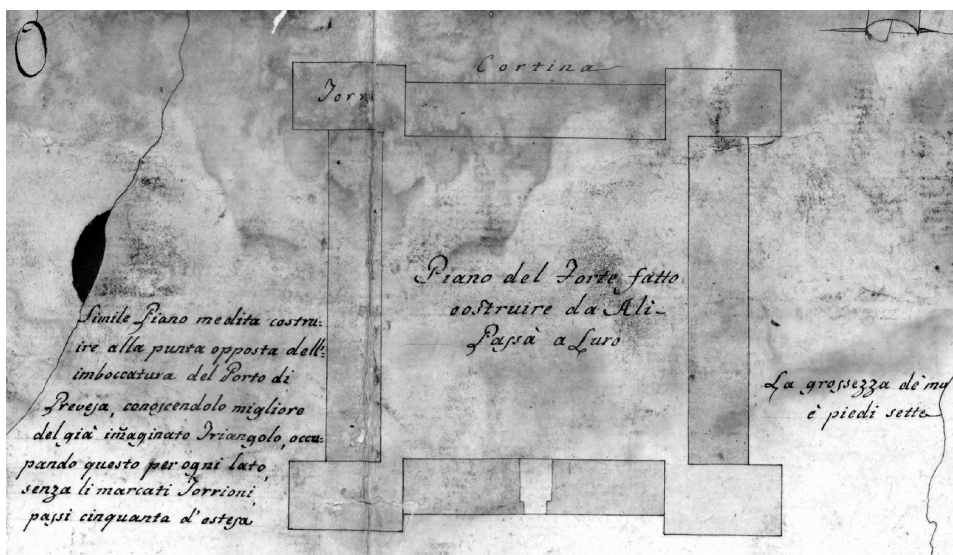 Cortina
Torr
Piano del Forte fatto
costruire da Ali
Passà a Luro
Simile Piano medita costru:
ire alla punta opposta dell':
imboccatura del Porto di
Prevesa, conoscendolo migliore
del già imaginato Triangolo, occu:
pando questo per ogni lato,
senza li marcati Torrioni,
passi cinquanta d'estesa
La grossezza de' mu
è piedi sette